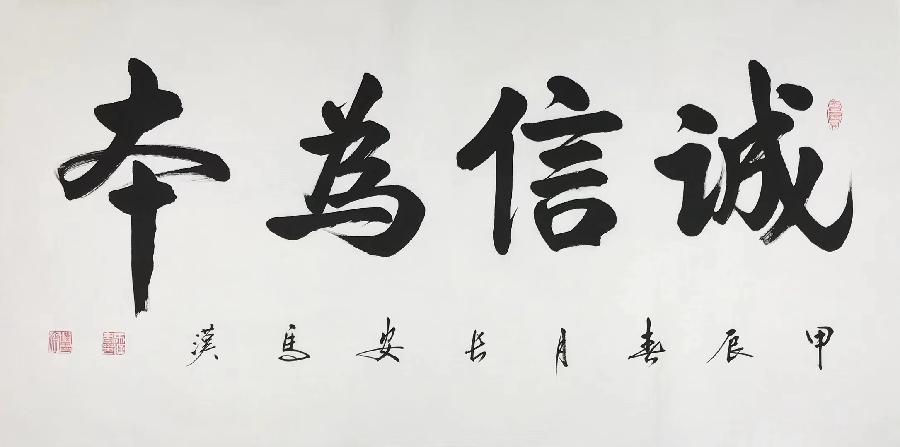 诚信为本
甲辰春月长安马汉